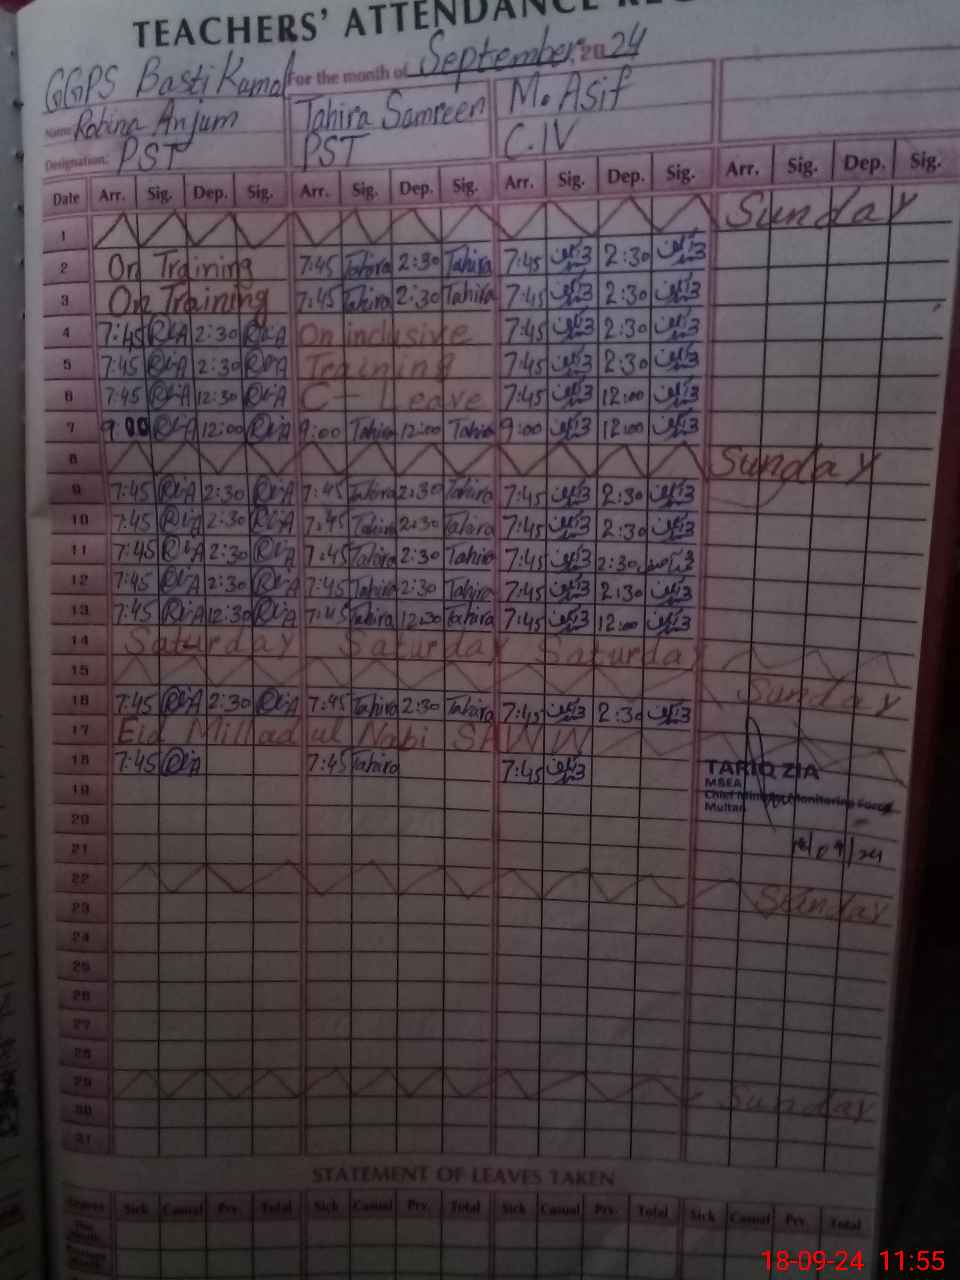 TEACHERS' ATTENDANCE
GGPS Basti Kamal For the month of September, 2024
Name Robina Anjum Tahira Samreen M. Asif
Designation: PST PST C.IV
Date Arr. Sig. Dep. Sig. Arr. Sig. Dep. Sig. Arr. Sig. Dep. Sig. Arr. Sig. Dep. Sig.
1 Sunday
2 On Training 7:45 Tahira 2:30 Tahira 7:45 2:30
3 On Training 7:45 Tahira 2:30 Tahira 7:45 2:30
4 7:45 R.A 2:30 R.A On inclusive 7:45 2:30
5 7:45 R.A 2:30 R.A Training 7:45 2:30
6 7:45 R.A 12:30 R.A C - Leave 7:45 12:00
7 9:00 R.A 12:00 R.A 9:00 Tahira 12:00 Tahira 9:00 12:00
8 Sunday
9 7:45 R.A 2:30 R.A 7:45 Tahira 2:30 Tahira 7:45 2:30
10 7:45 R.A 2:30 R.A 7:45 Tahira 2:30 Tahira 7:45 2:30
11 7:45 R.A 2:30 R.A 7:45 Tahira 2:30 Tahira 7:45 2:30
12 7:45 R.A 2:30 R.A 7:45 Tahira 2:30 Tahira 7:45 2:30
13 7:45 R.A 12:30 R.A 7:45 Tahira 12:30 Tahira 7:45 12:00
14 Saturday Saturday Saturday
15 Sunday
16 7:45 R.A 2:30 R.A 7:45 Tahira 2:30 Tahira 7:45 2:30
17 Eid Millad ul Nabi SAWW
18 7:45 R.A 7:45 Tahira 7:45
TARIQ ZIA
MBEA
Chief Minister Monitoring Force
Multan
19
20
21 18/09/24
22 Sunday
23
24
25
26
27
28
29 Sunday
30
31
STATEMENT OF LEAVES TAKEN
Leaves Sick Casual Prv. Total Sick Casual Prv. Total Sick Casual Prv. Total Sick Casual Prv. Total
18-09-24 11:55